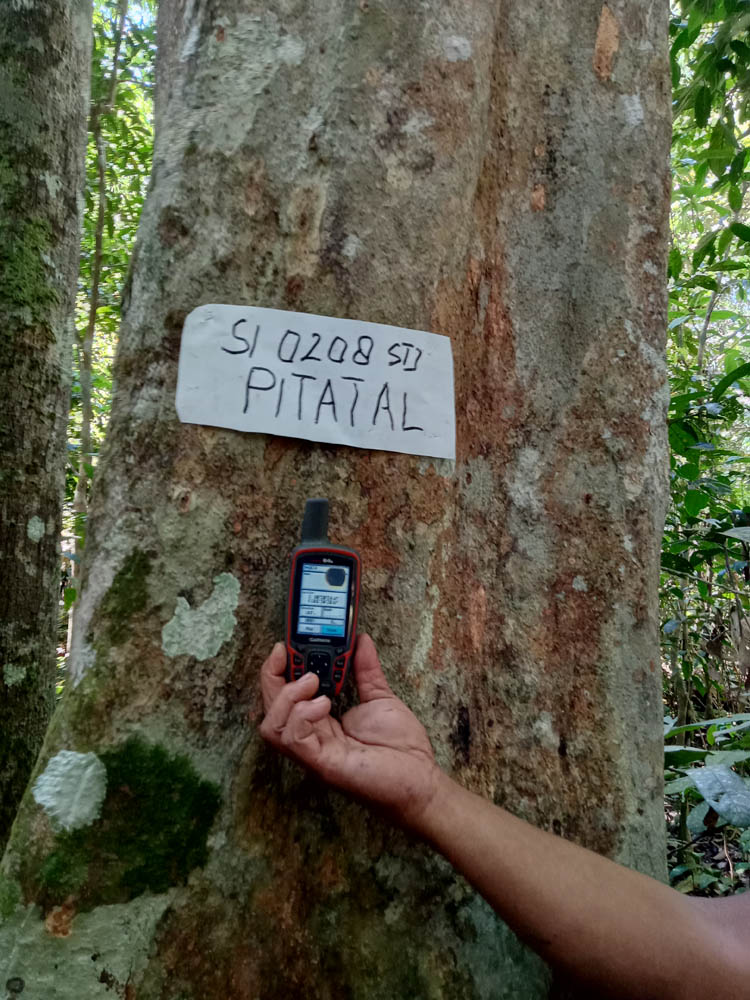 SI 0208 STD
PITATAL
64s
GARMIN